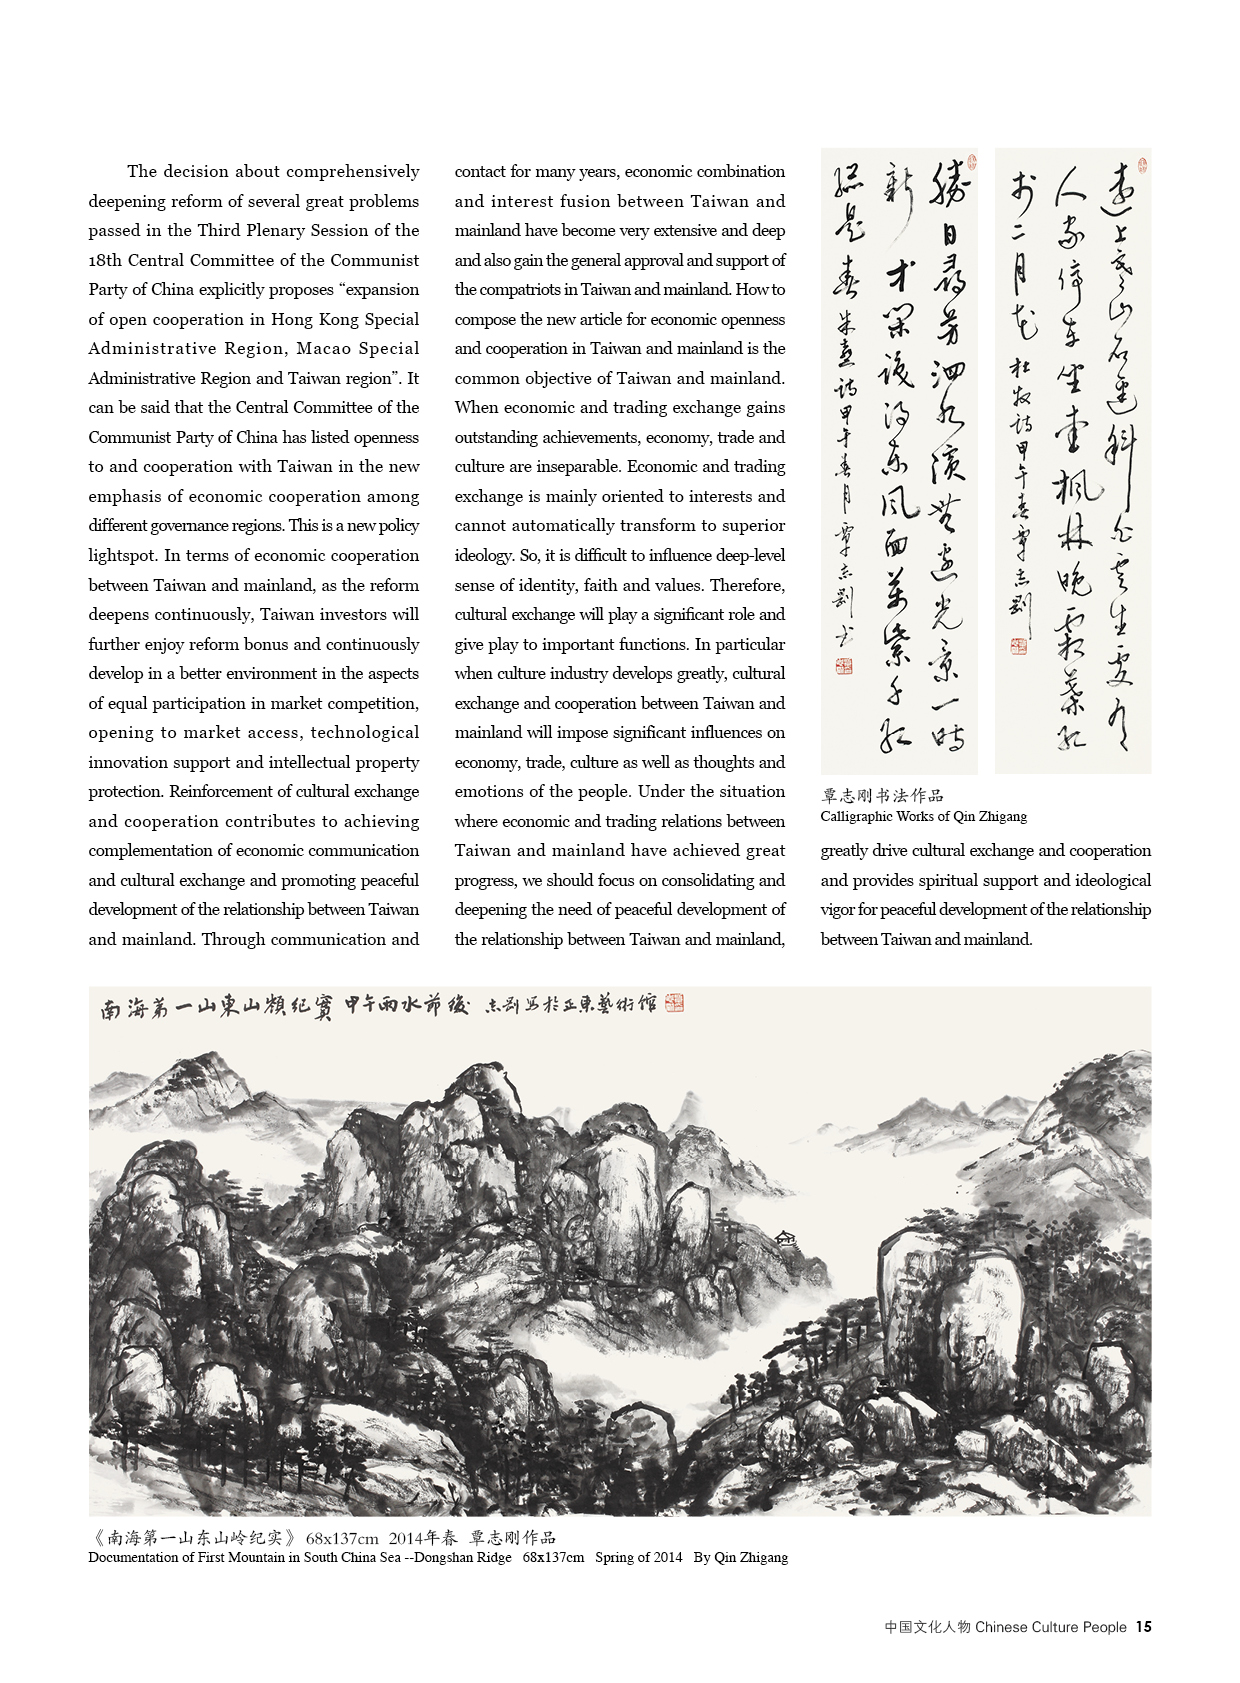 The decision about comprehensively
deepening reform of several great problems
passed in the Third Plenary Session of the
18th Central Committee of the Communist
Party of China explicitly proposes “expansion
of open cooperation in Hong Kong Special
Administrative Region, Macao Special
Administrative Region and Taiwan region”. It
can be said that the Central Committee of the
Communist Party of China has listed openness
to and cooperation with Taiwan in the new
emphasis of economic cooperation among
different governance regions. This is a new policy
lightspot. In terms of economic cooperation
between Taiwan and mainland, as the reform
deepens continuously, Taiwan investors will
further enjoy reform bonus and continuously
develop in a better environment in the aspects
of equal participation in market competition,
opening to market access, technological
innovation support and intellectual property
protection. Reinforcement of cultural exchange
and cooperation contributes to achieving
complementation of economic communication
and cultural exchange and promoting peaceful
development of the relationship between Taiwan
and mainland. Through communication and
contact for many years, economic combination
and interest fusion between Taiwan and
mainland have become very extensive and deep
and also gain the general approval and support of
the compatriots in Taiwan and mainland. How to
compose the new article for economic openness
and cooperation in Taiwan and mainland is the
common objective of Taiwan and mainland.
When economic and trading exchange gains
outstanding achievements, economy, trade and
culture are inseparable. Economic and trading
exchange is mainly oriented to interests and
cannot automatically transform to superior
ideology. So, it is difficult to influence deep-level
sense of identity, faith and values. Therefore,
cultural exchange will play a significant role and
give play to important functions. In particular
when culture industry develops greatly, cultural
exchange and cooperation between Taiwan and
mainland will impose significant influences on
economy, trade, culture as well as thoughts and
emotions of the people. Under the situation
where economic and trading relations between
Taiwan and mainland have achieved great
progress, we should focus on consolidating and
deepening the need of peaceful development of
the relationship between Taiwan and mainland,
勝日尋芳泗水濱無邊光景一時
新才閑識得東風面萬紫千紅
總是春朱熹詩甲午春月覃志剛书
遠上寒山石逕斜白雲生處有
人家停車坐愛楓林晚霜葉紅
於二月花杜牧詩甲午春覃志剛
覃志刚书法作品
Calligraphic Works of Qin Zhigang
greatly drive cultural exchange and cooperation
and provides spiritual support and ideological
vigor for peaceful development of the relationship
between Taiwan and mainland.
南海第一山東山嶺紀實 甲午雨水前後 志剛写於正東藝術馆
《南海第一山东山岭纪实》 68x137cm 2014年春 覃志刚作品
Documentation of First Mountain in South China Sea --Dongshan Ridge 68x137cm Spring of 2014 By Qin Zhigang
中国文化人物 Chinese Culture People 15